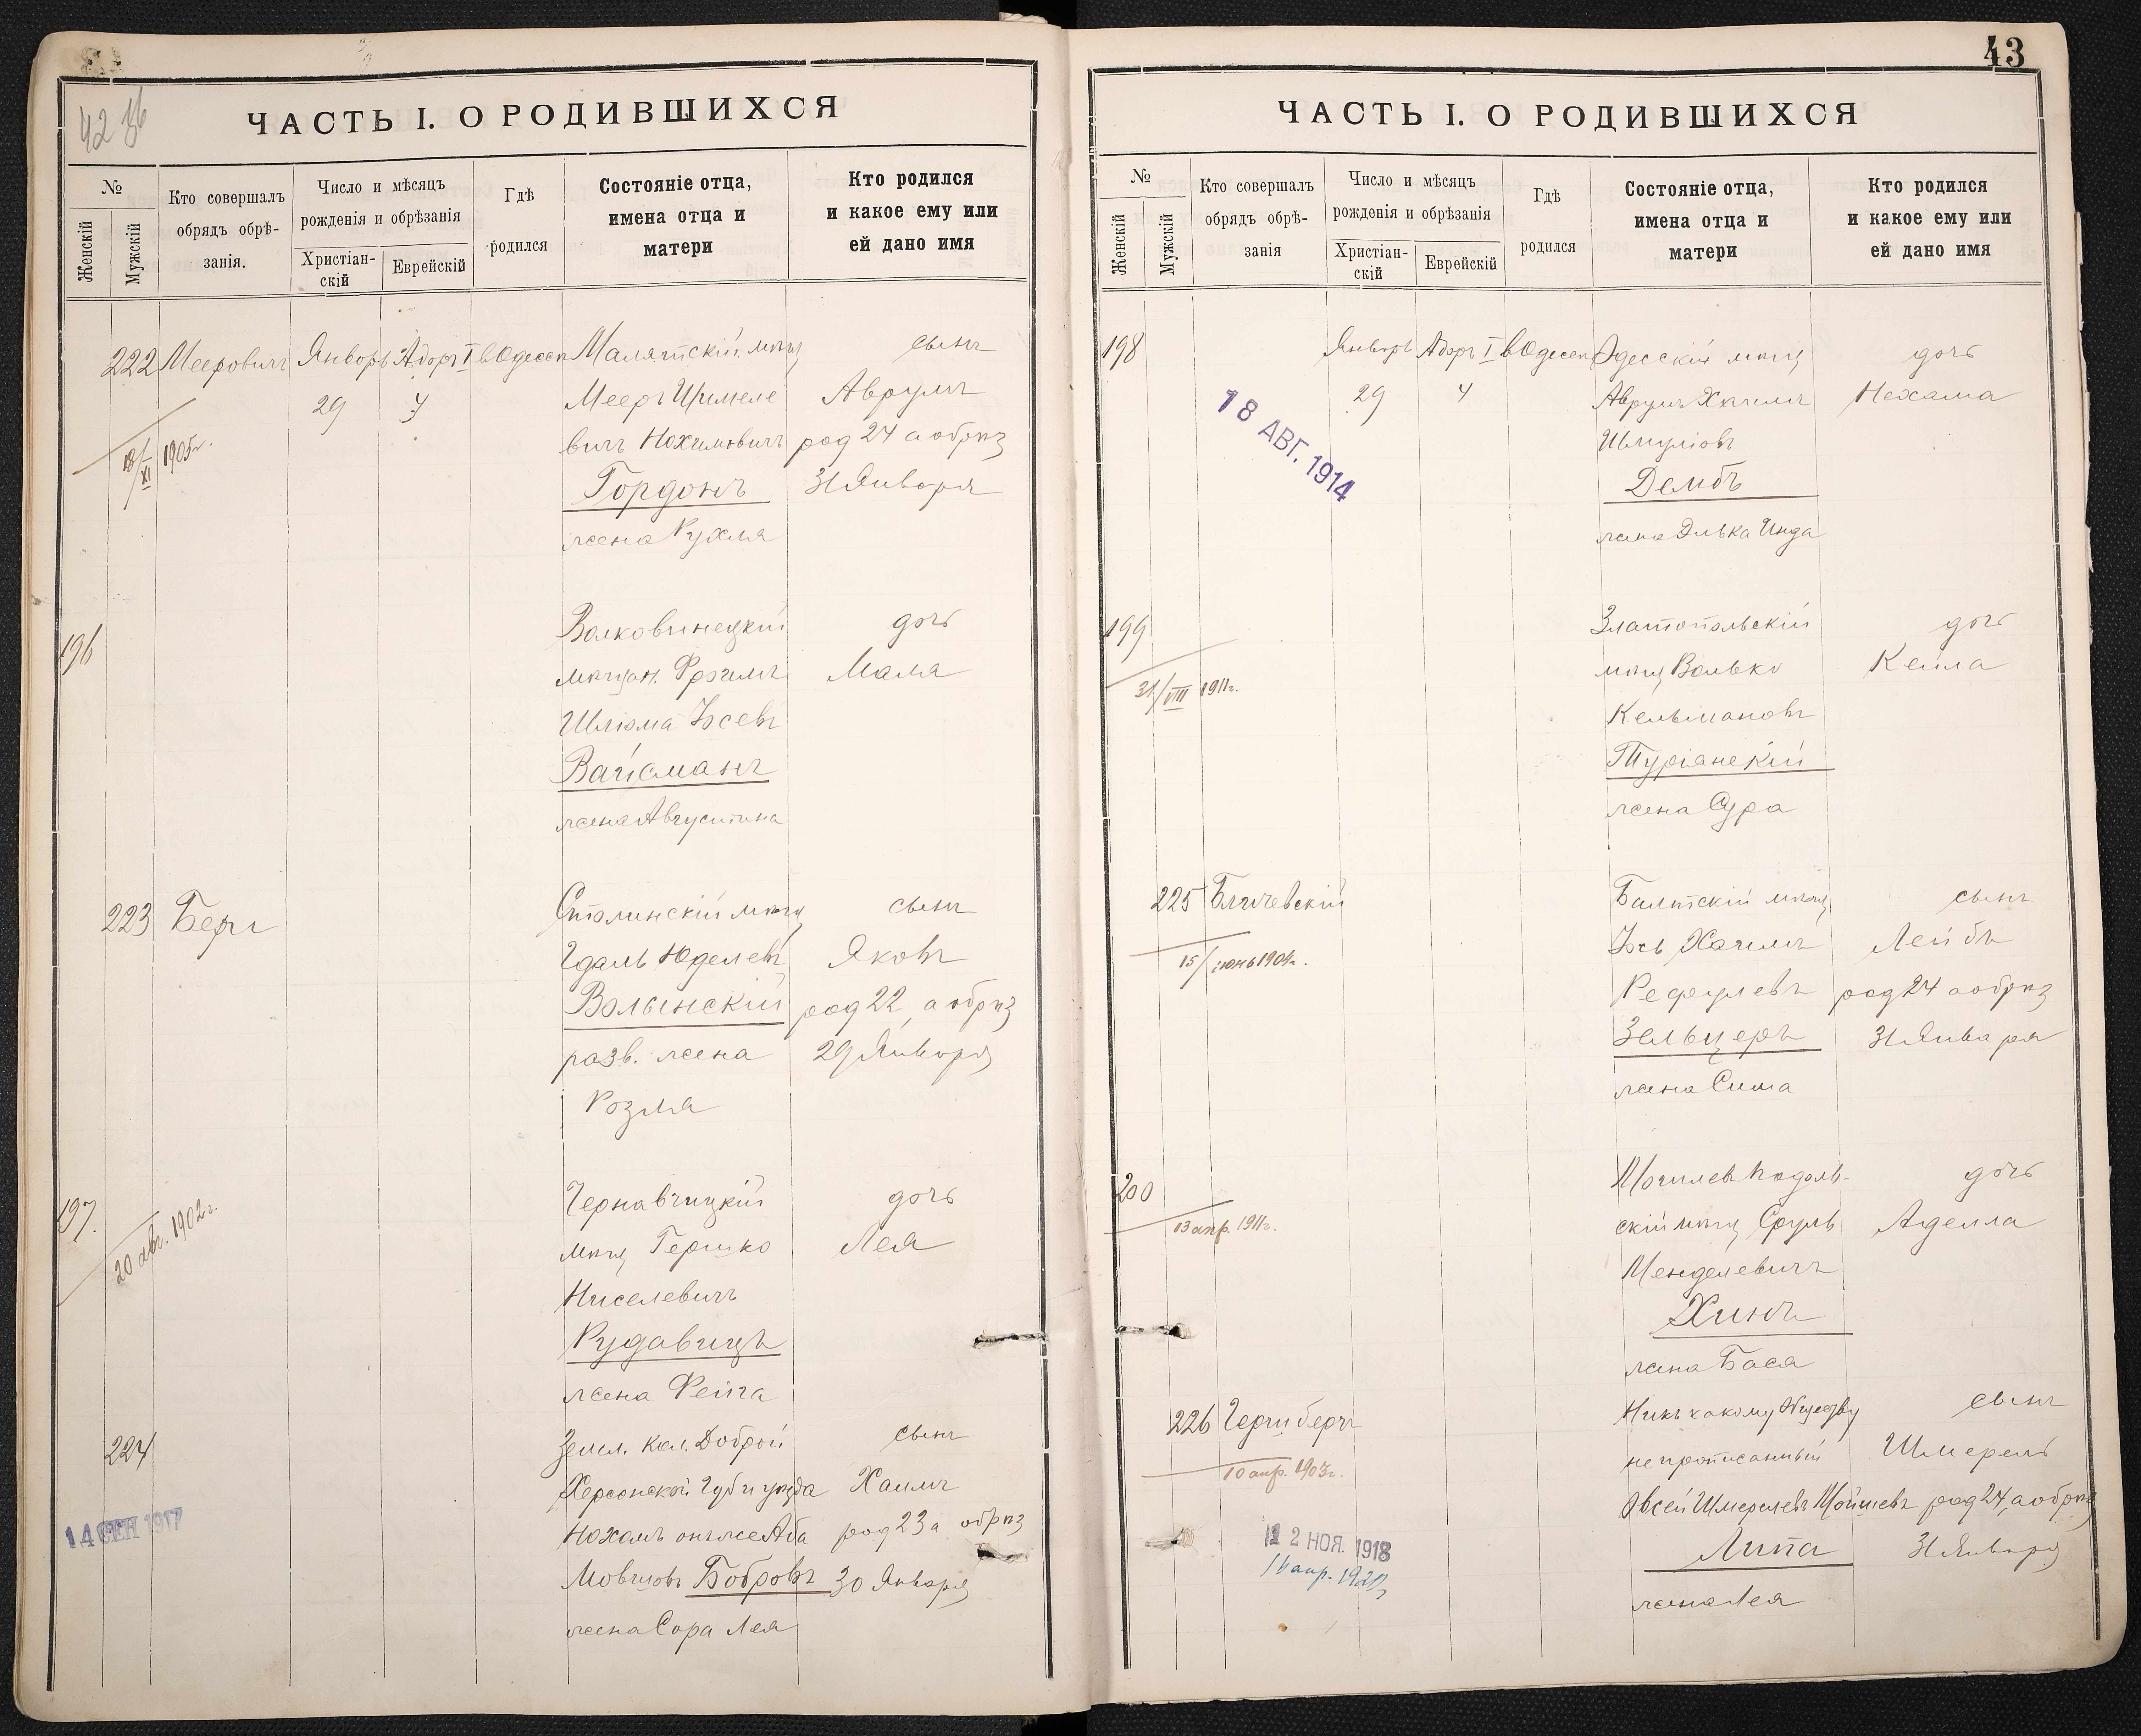 42 36
ЧАСТЬ I. О РОДИВШИХСЯ
№
Женскій
Мужскій
Кто совершалъ
обрядъ обрѣ-
занія.
Число и мѣсяцъ
рожденія и обрѣзанія
Христіан-
скій
Еврейскій
Гдѣ
родился
Состояніе отца,
имена отца и
матери
Кто родился
и какое ему или
ей дано имя
222 Мееровичъ Январь Адаръ I в Одессѣ Малятскій мѣщ сынъ
29 4 Мееръ Аврумъ
вичъ Нохимовичъ род 24 а обрѣз
18/XI 1905г.
Гордонъ 31 Января
жена Рухля
196 Волковинецкій дочь
мѣщан. Фроимъ Маля
Шлиома Іосевъ
Вайсманъ
жена Августина
223 Бери Столинскій мѣщ сынъ
Гдаль Юделевъ Яковъ
Волынскій род 22, а обрѣз
разв. жена 29 Января
Розля
197. Чернавчицкій дочь
20 авг. 1902г.
мѣщ Гершко Лея
Ниселевичъ
Рудавицъ
жена Фейга
224 Земл. кол. Доброй сынъ
Херсонской Губ и уѣзда Хаимъ
14 СЕН 1917
Нохамъ онъ же Аба род 23 а обрѣз
Мовшовъ Бобровъ 30 Января
жена Сора Лея
43
ЧАСТЬ I. О РОДИВШИХСЯ
№
Женскій
Мужскій
Кто совершалъ
обрядъ обрѣ-
занія
Число и мѣсяцъ
рожденія и обрѣзанія
Христіан-
скій
Еврейскій
Гдѣ
родился
Состояніе отца,
имена отца и
матери
Кто родился
и какое ему или
ей дано имя
198 Январь Адаръ I в Одессѣ Одесскій мѣщ дочь
29 4 Аврумъ Хаимъ Нехама
18 АВГ. 1914
Шмуліовъ
Дембъ
жена Элька Инда
199 Златопольскій дочь
мѣщ Волько Кейла
31/VIII 1911г.
Кельмановъ
Туріанскій
жена Сура
225 Бличевскій Балтскій мѣщ сынъ
15/іюнь 1901г.
Іось Хаимъ Лейбъ
Рефулевъ род 24 а обрѣз
Зельцеръ 31 Января
жена Сима
200 Могилев Подоль- дочь
13 апр. 1911г.
скій мѣщ Сруль Аделла
Менделевичъ
Хинъ
жена Бася
226 Гернберъ Никъ какому Обществу сынъ
10 апр. 1903г.
не прописанный Шмерель
Эвсей Шмерелевъ Мошевъ род 24, а обрѣз
12 НОЯ. 1918
Липа 31 Января
жена Лея